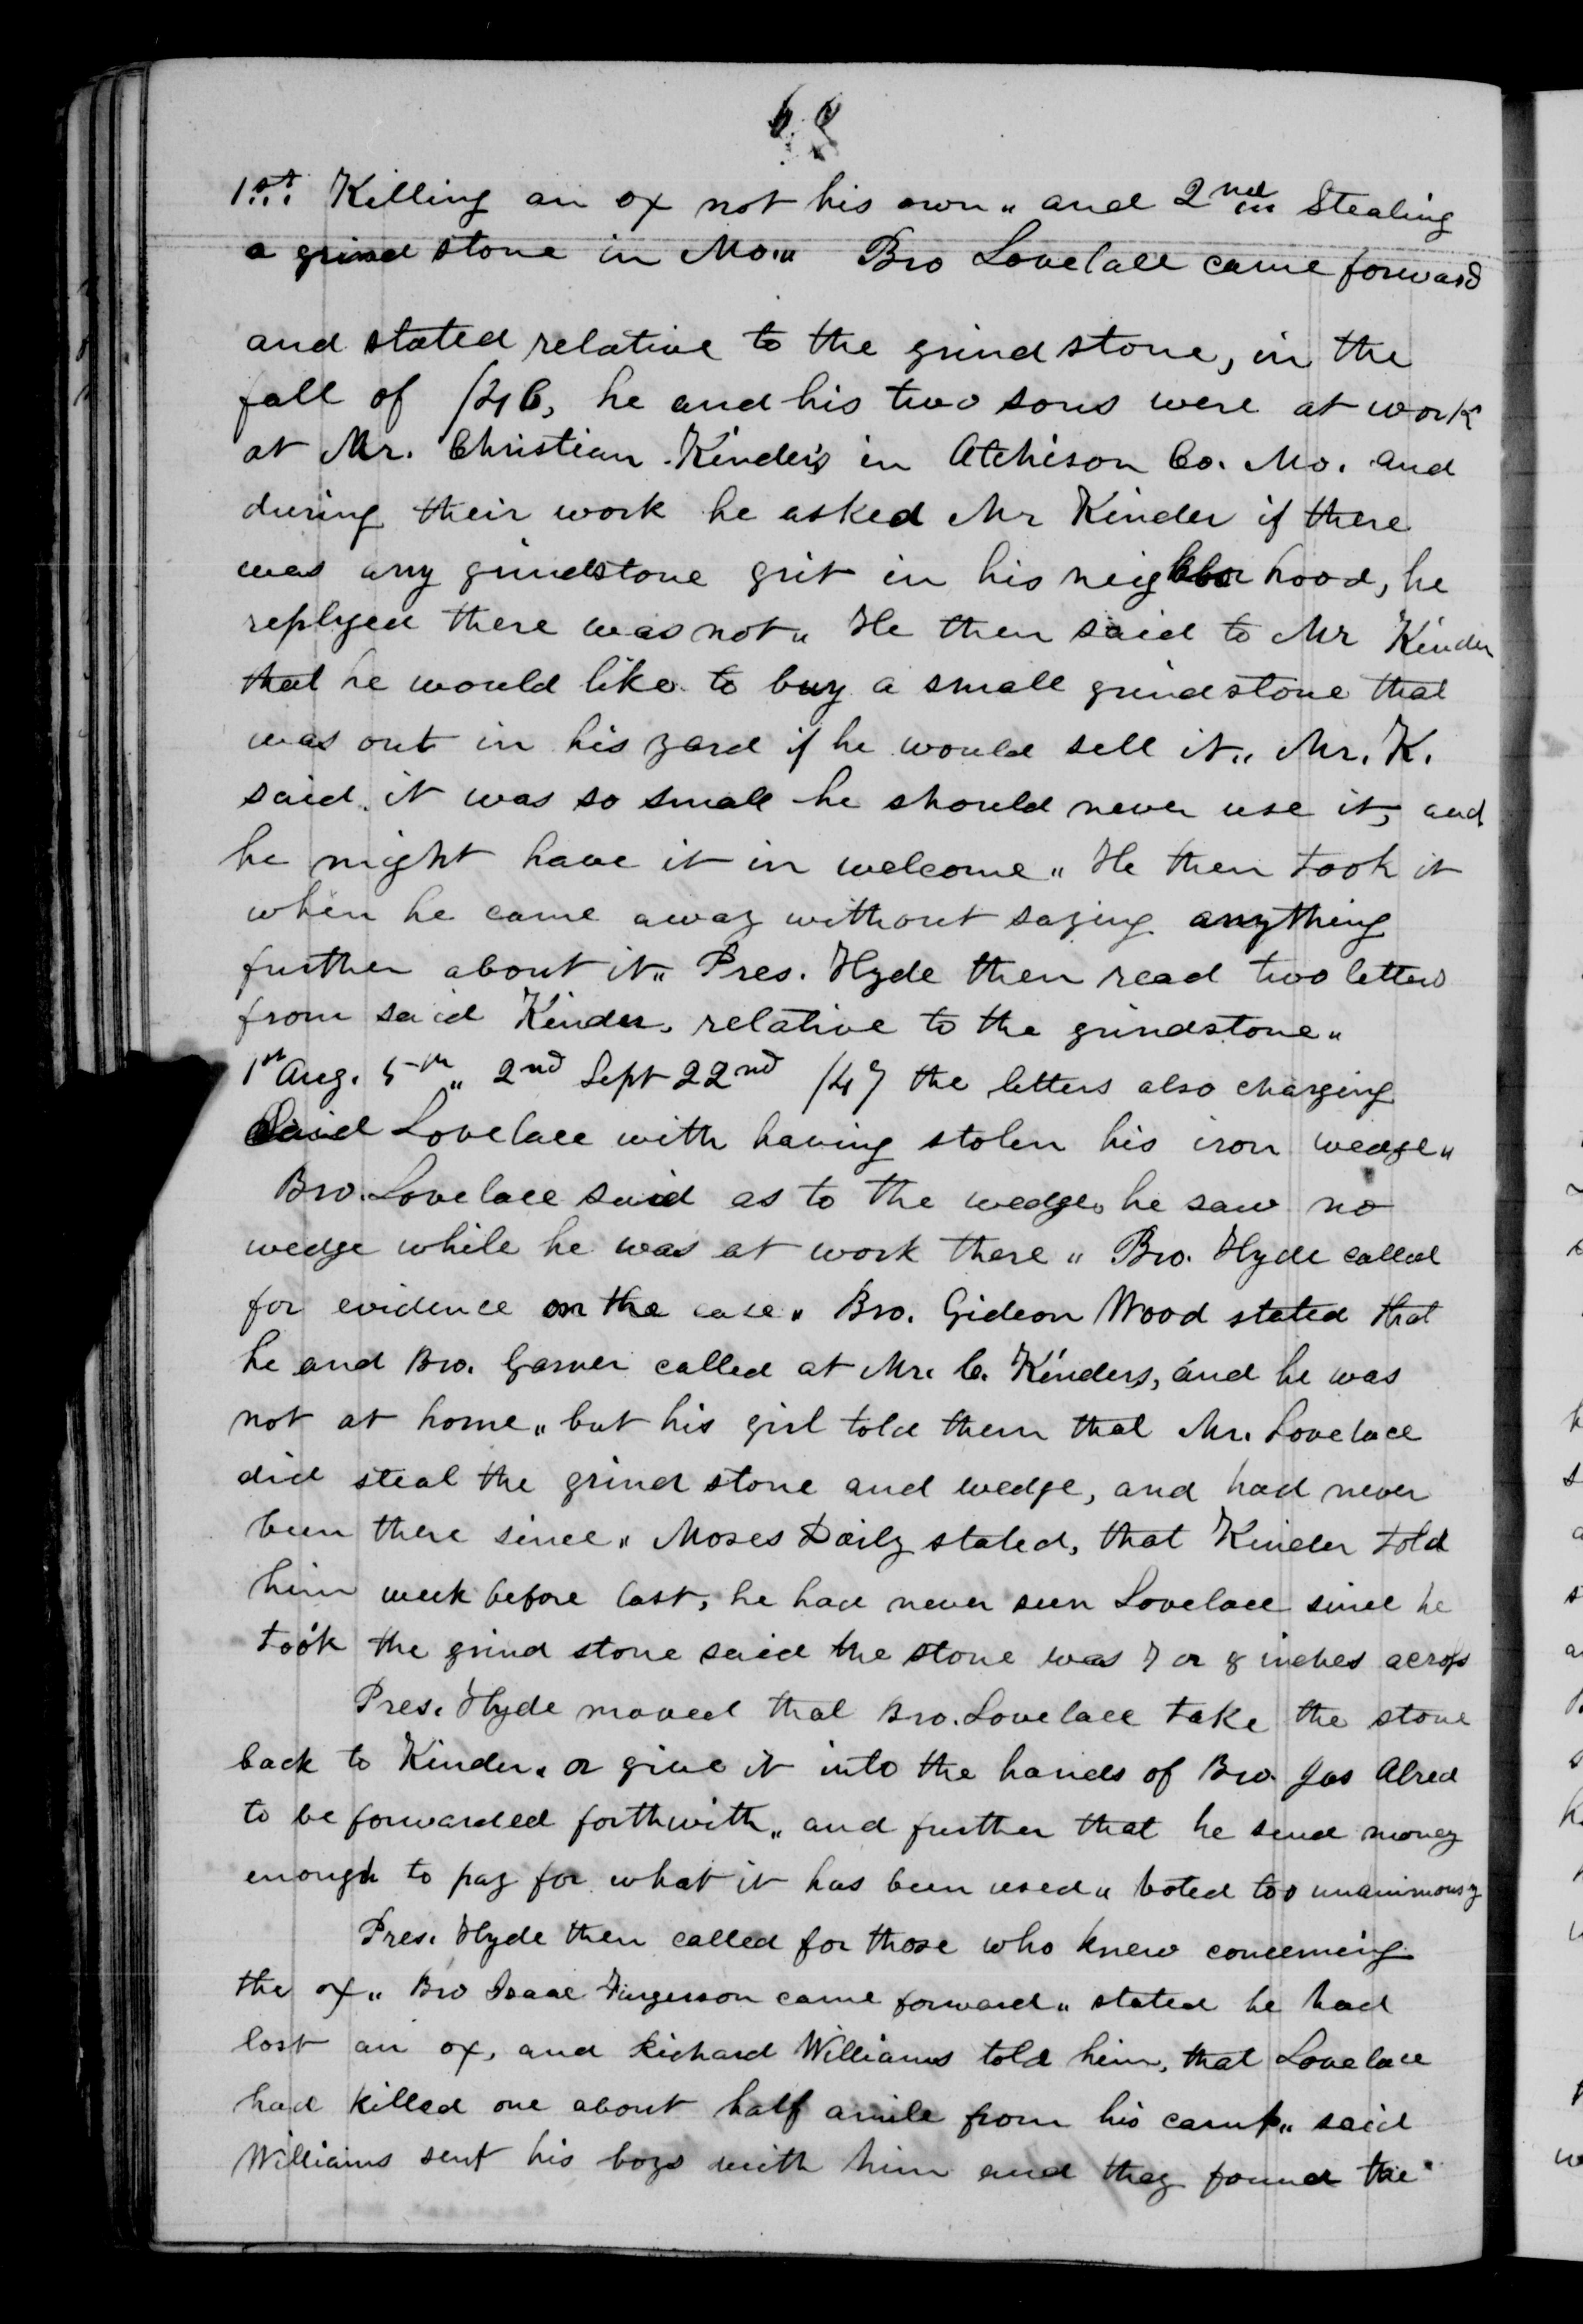 1st. Killing an ox not his own „ and 2nd in Stealing
a grind stone in Mo. „ Bro Lovelace came forward
and stated relative to the grind stone, in the
fall of /46, he and his two sons were at work
at Mr. Christian Kinder's in Atchison Co. Mo. and
during their work he asked Mr Kinder if there
was any grindstone grit in his neighbor hood, he
replyed there was not „ He then said to Mr Kinder
that he would like to buy a small grindstone that
was out in his yard if he would sell it „ Mr. K.
said it was so small he should never use it, and
he might have it in welcome „ He then took it
when he came away without saying anything
further about it „ Pres. Hyde then read two letters
from said Kinder, relative to the grindstone „
1st Aug. 5th „ 2nd Sept 22nd /47 the letters also charging
Said Lovelace with having stolen his iron wedge „
Bro. Lovelace said as to the wedge, he saw no
wedge while he was at work there „ Bro. Hyde called
for evidence on the case „ Bro. Gideon Wood stated that
he and Bro. Garner called at Mr. C. Kinders, and he was
not at home „ but his girl told them that Mr. Lovelace
did steal the grind stone and wedge, and had never
been there since „ Moses Daily stated, that Kinder told
him week before last, he had never seen Lovelace since he
took the grind stone said the stone was 7 or 8 inches across
Pres. Hyde moved that Bro. Lovelace take the stone
back to Kinder, or give it into the hands of Bro. Jas Alred
to be forwarded forthwith „ and further that he send money
enough to pay for what it has been used „ voted too unanimousy
Pres. Hyde then called for those who knew concerning
the ox „ Bro Isaac Furgerson came forward „ stated he had
lost an ox, and Richard Williams told him, that Lovelace
had killed one about half a mile from his camp „ said
Williams sent his boys with him and they found the